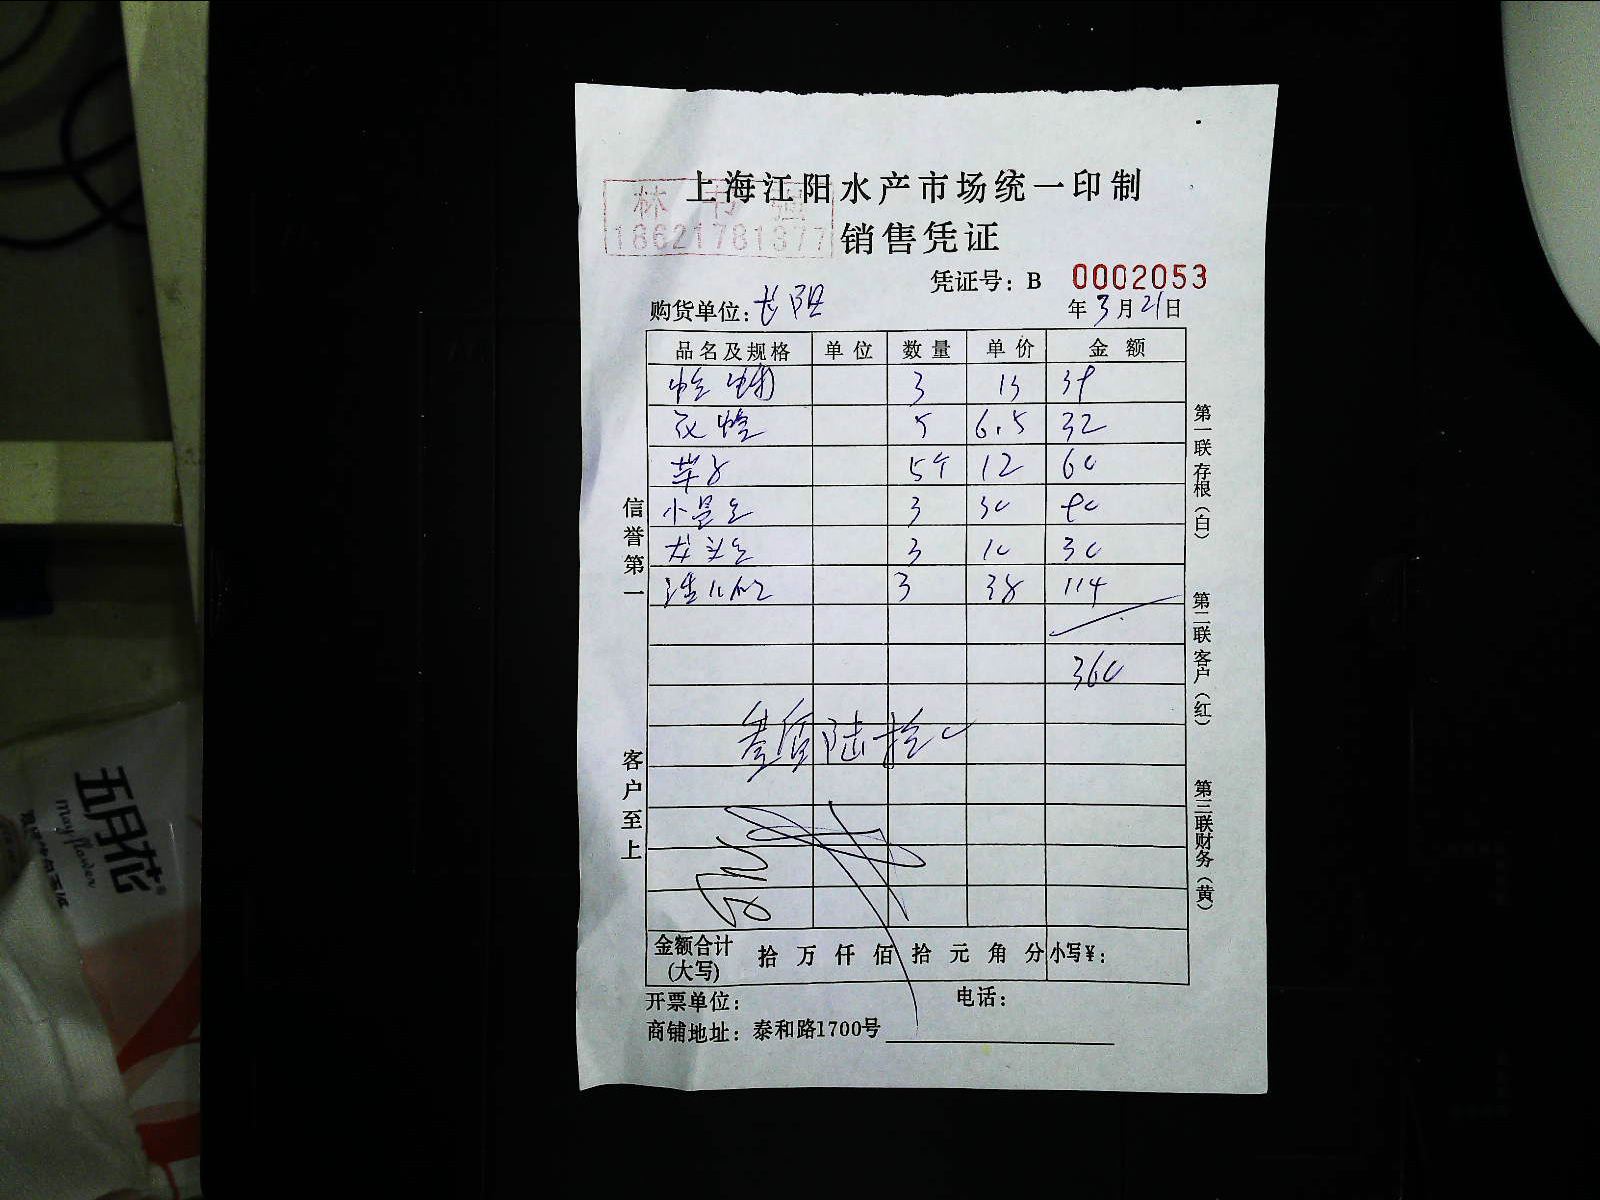 上海江阳水产市场统一印制
林 强
18621781377
销售凭证
凭证号：B 0002053
购货单位：长阳
年3月21日
品名及规格 单位 数量 单价 金额
3 13 39
花蛤 5 6.5 32
5个 12 60
3 30 90
龙头 3 10 30
3 38 114
360
叁佰陆拾
金额合计(大写) 拾 万 仟 佰 拾 元 角 分 小写¥：
开票单位： 电话：
商铺地址：泰和路1700号
信誉第一 客户至上
第一联 存根（白）
第二联 客户（红）
第三联 财务（黄）
五月花
mayflower